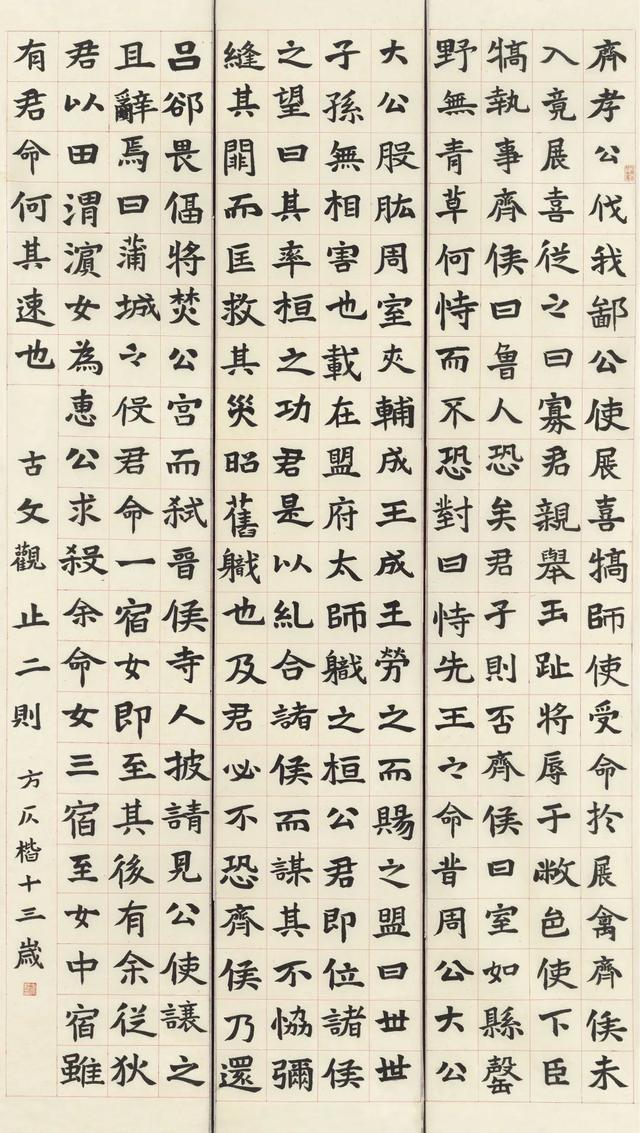 齊孝公伐我鄙公使展喜犒師使受命於展禽齊侯未
入竟展喜從之曰寡君親舉玉趾將辱于敝邑使下臣
犒執事齊侯曰魯人恐矣君子則否齊侯曰室如縣罄
野無青草何恃而不恐對曰恃先王之命昔周公大公
大公股肱周室夾輔成王成王勞之而賜之盟曰世世
子孫無相害也載在盟府太師職之桓公君即位諸侯
之望曰其率桓之功君是以糾合諸侯而謀其不恊彌
縫其闕而匡救其災昭舊職也及君必不恐齊侯乃還
呂郤畏偪將焚公宮而弒晉侯寺人披請見公使讓之
且辭焉曰蒲城之役君命一宿女即至其後有余從狄
君以田渭濱女為惠公求殺余命女三宿至女中宿雖
有君命何其速也 古文觀止二則 方仄楷十三歲